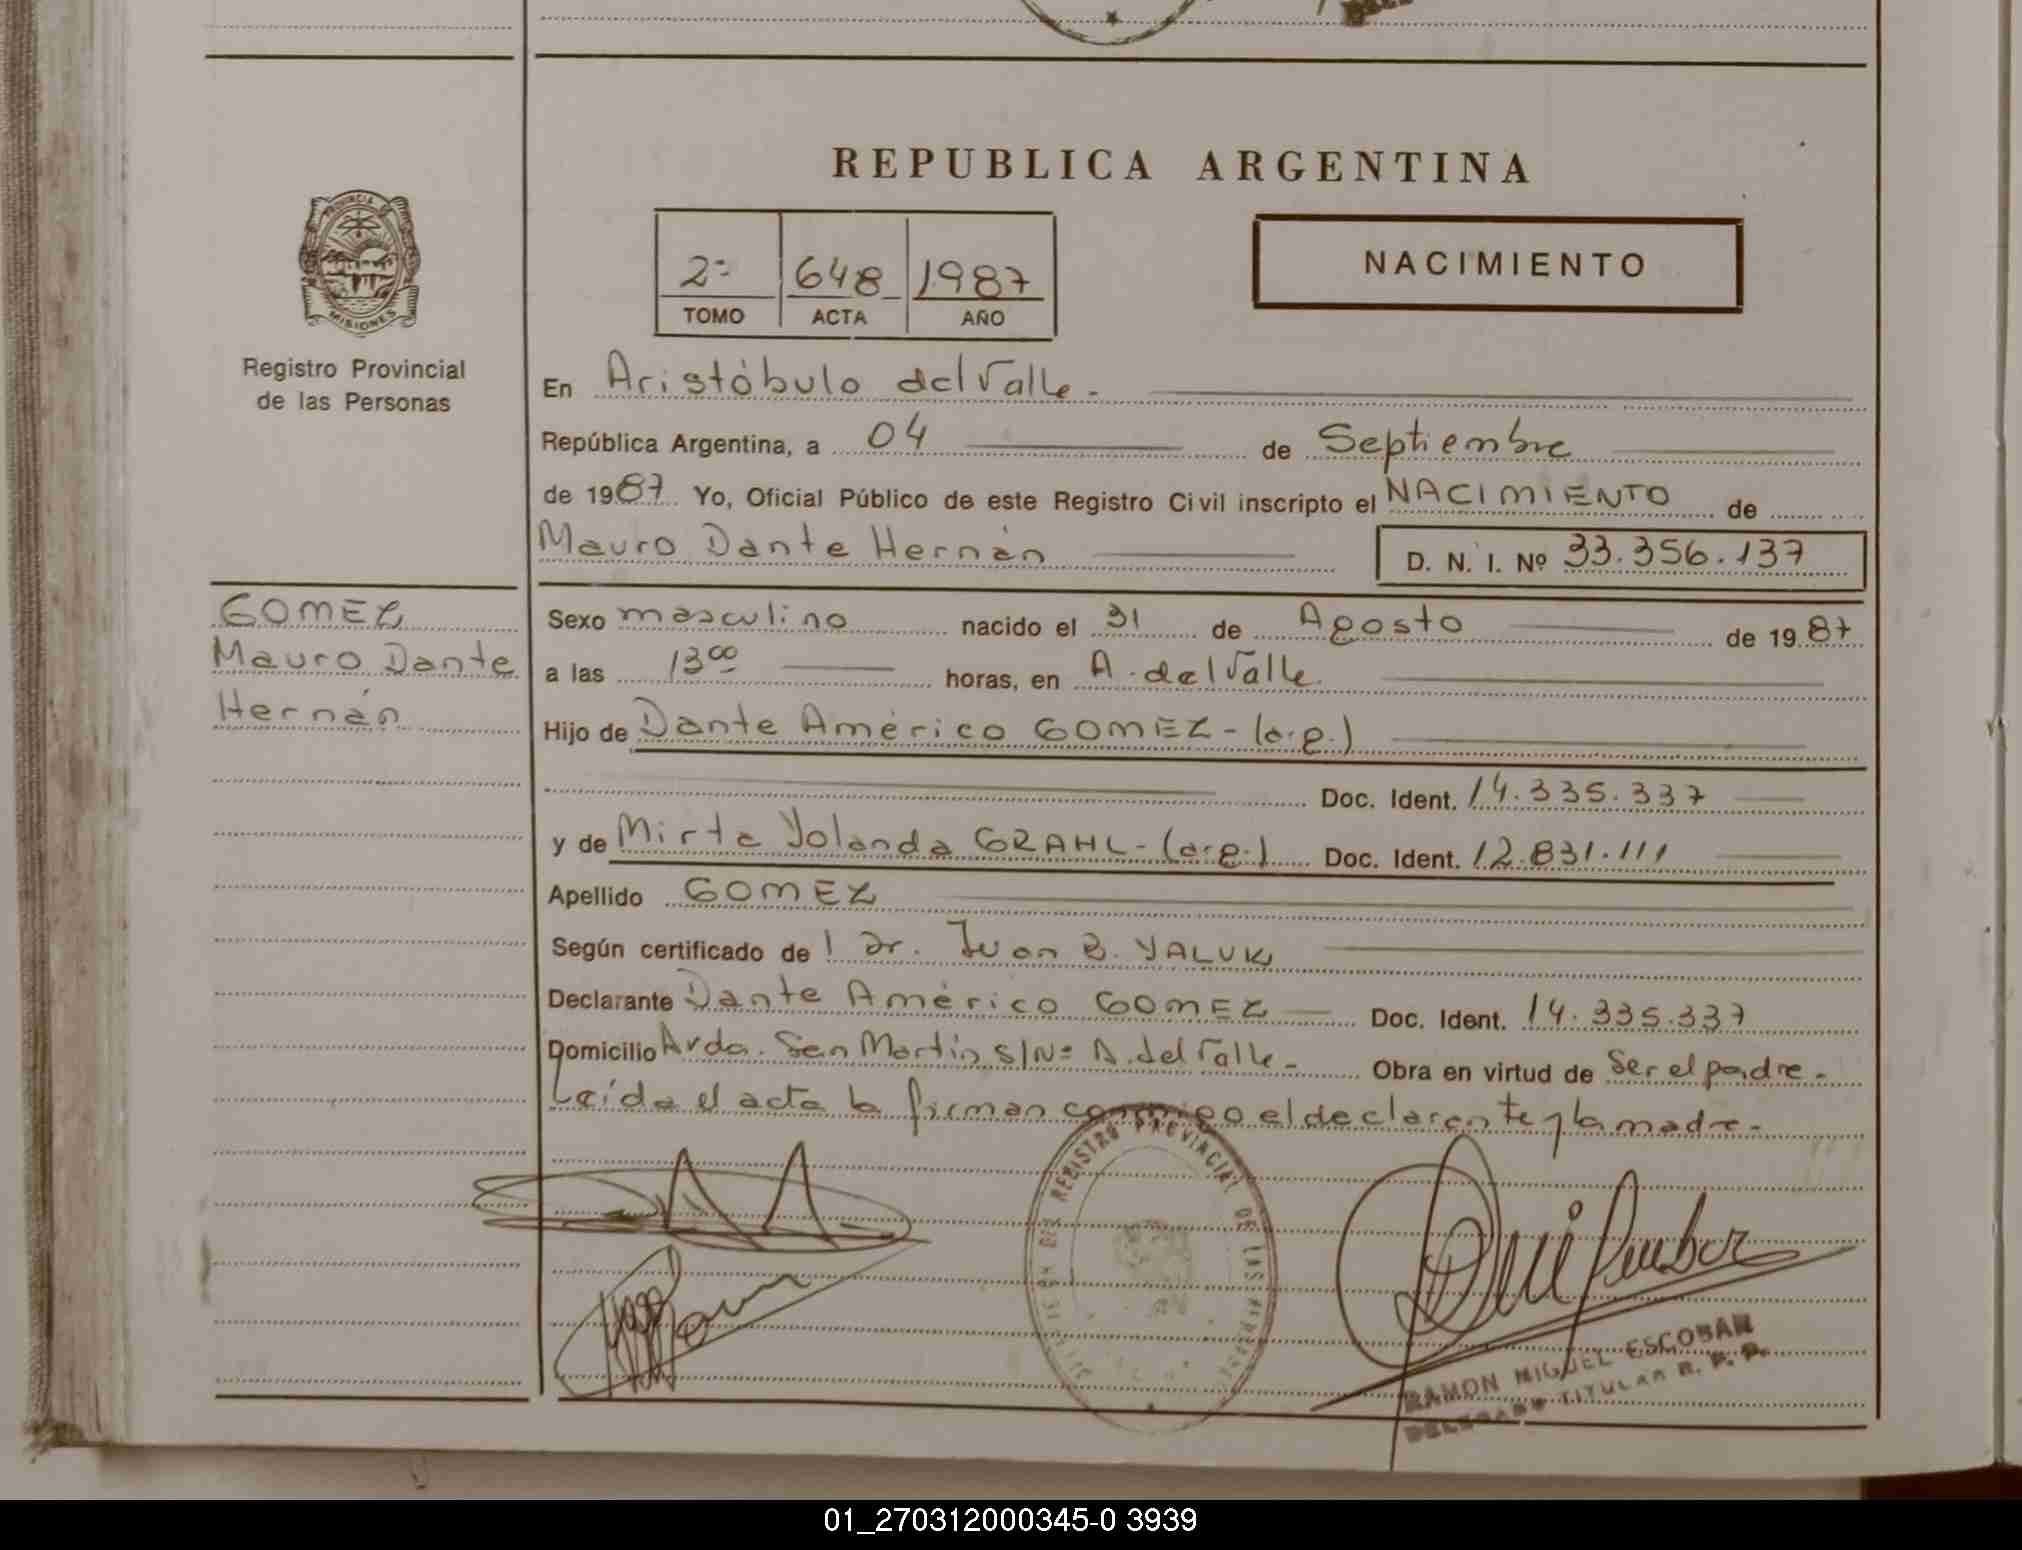 REPUBLICA ARGENTINA
PROVINCIA DE
MISIONES
Registro Provincial
de las Personas
2º 648 1987
TOMO ACTA AÑO
NACIMIENTO
En Aristóbulo del Valle.-
República Argentina, a 04 de Septiembre
de 1987 Yo, Oficial Público de este Registro Civil inscripto el NACIMIENTO de
Mauro Dante Hernán D. N. I. Nº 33.356.137
GOMEZ
Mauro Dante
Hernán
Sexo masculino nacido el 31 de Agosto de 1987
a las 13 00 horas, en A. del Valle.
Hijo de Dante Américo GOMEZ - (arg.)
Doc. Ident. 14.335.337
y de Mirta Yolanda GRAHL - (arg.) Doc. Ident. 12.831.111
Apellido GOMEZ
Según certificado de l Dr. Juan B. YALUK
Declarante Dante Américo GOMEZ Doc. Ident. 14.335.337
Domicilio Avda. San Martín S/Nº A. del Valle - Obra en virtud de Ser el padre.-
Leída el acta la firman conmigo el declarante y la madre.-
REGISTRO PROVINCIAL DE LAS
RAMON MIGUEL ESCOBAR
DELEGADO TITULAR R. P. P.
01_270312000345-0 3939